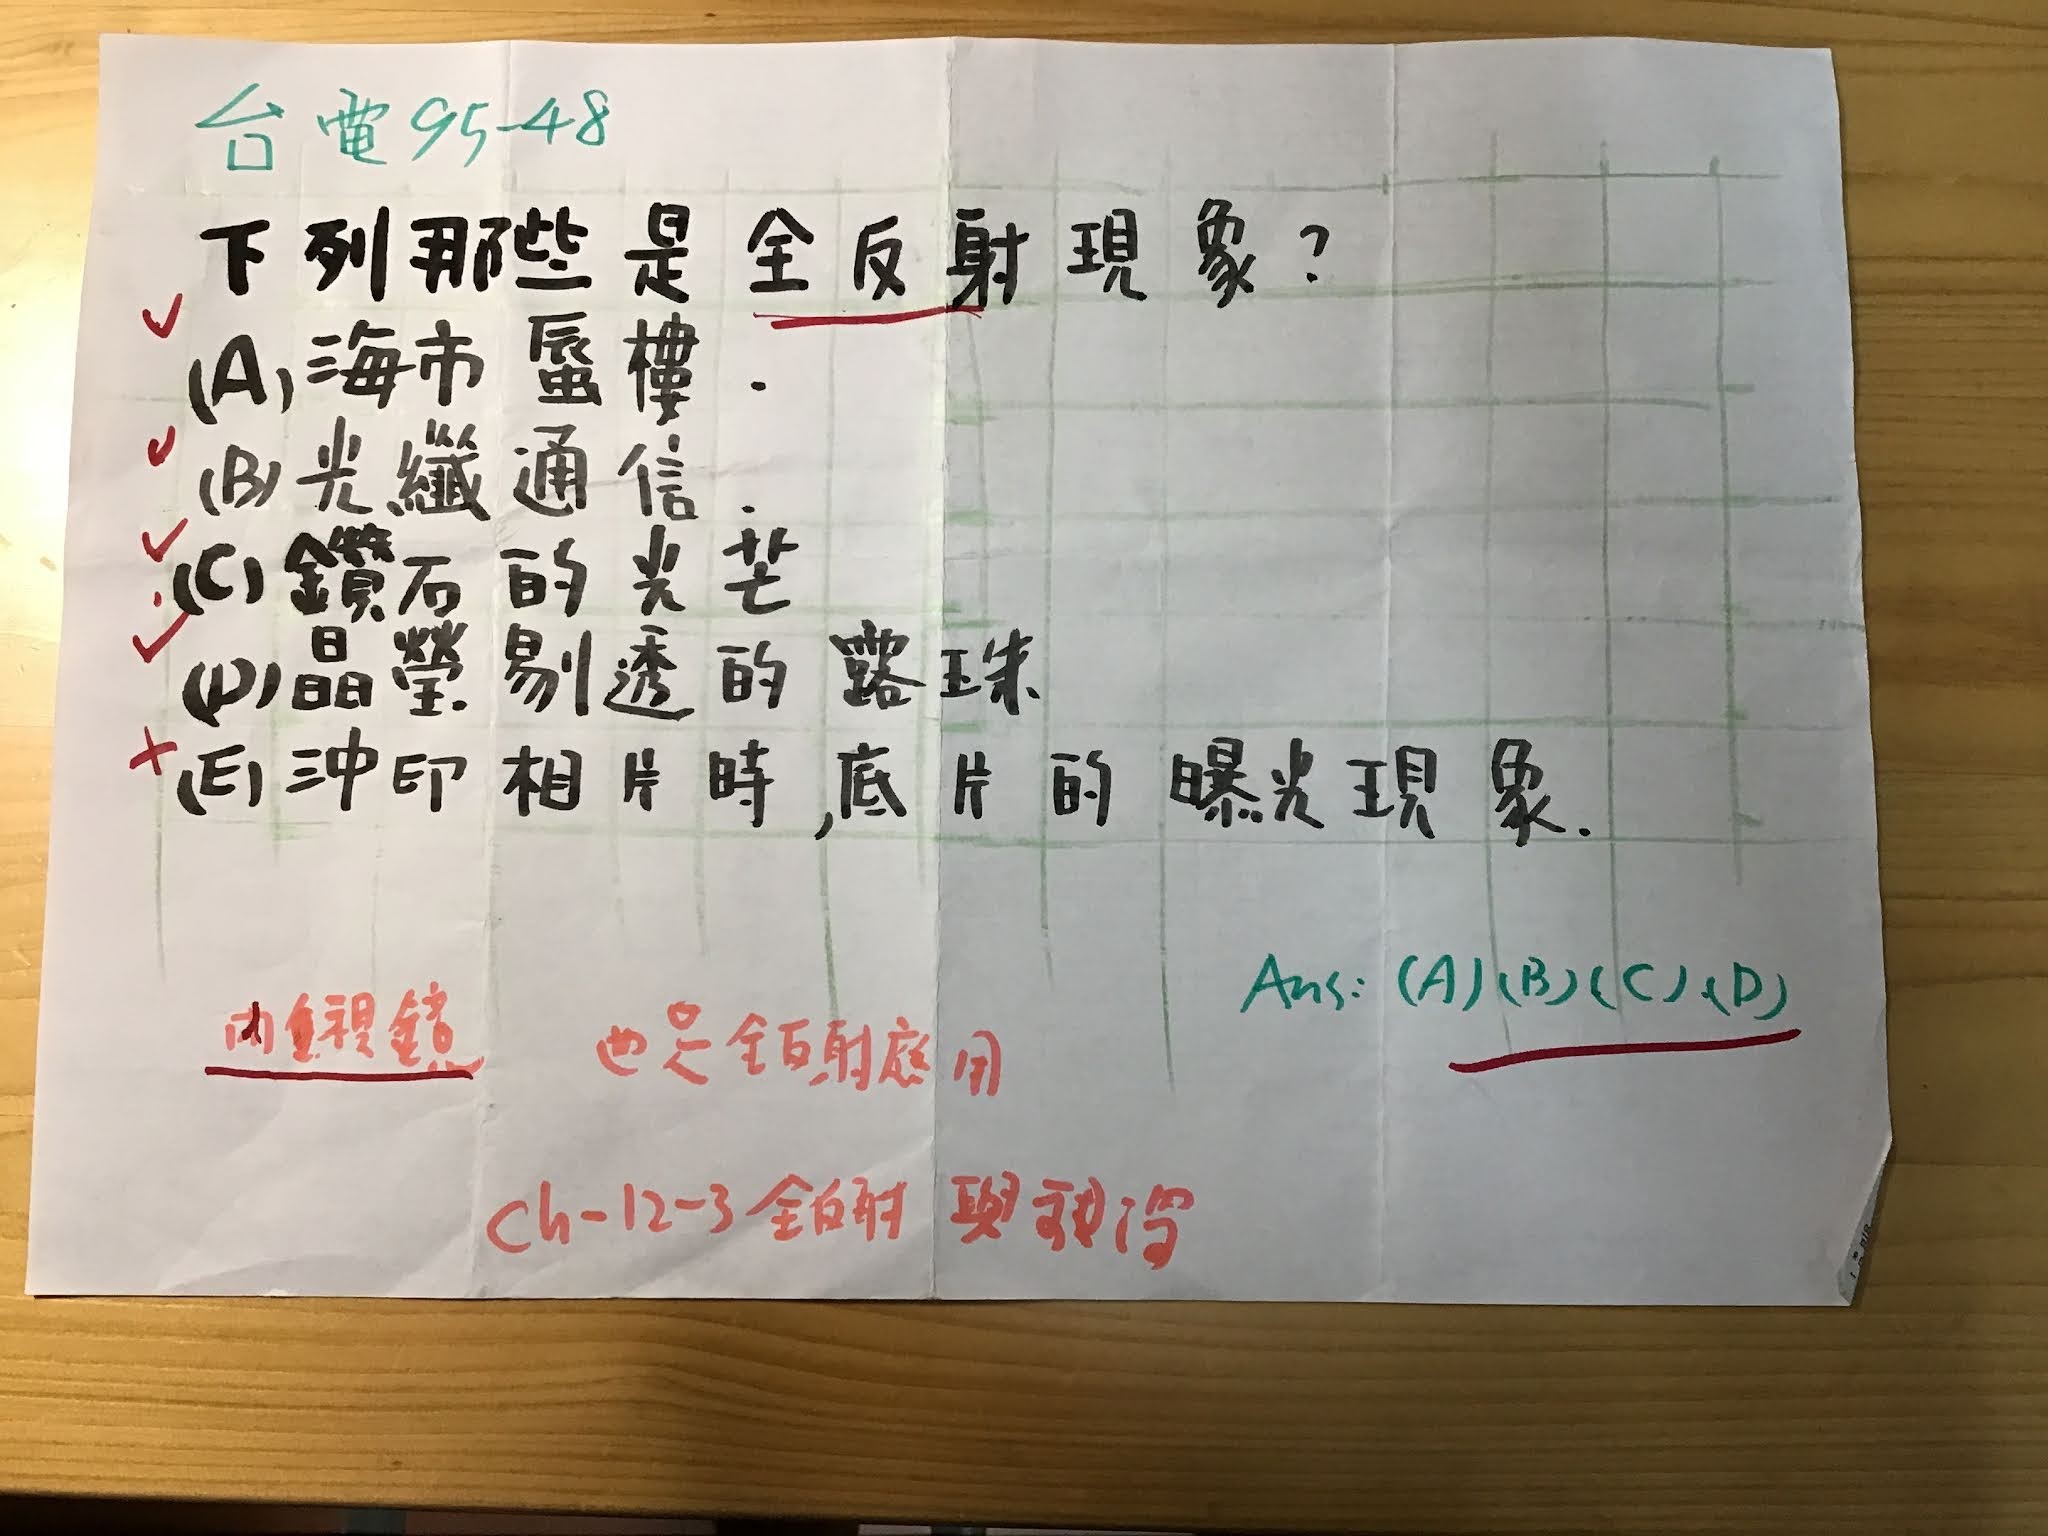 台電95-48
下列那些是全反射現象?
(A)海市蜃樓.
(B)光纖通信.
(C)鑽石的光芒
(D)晶瑩剔透的露珠
(E)沖印相片時,底片的曝光現象.
Ans: (A)(B)(C)(D)
內視鏡 也是全反射應用
Ch-12-3全反射